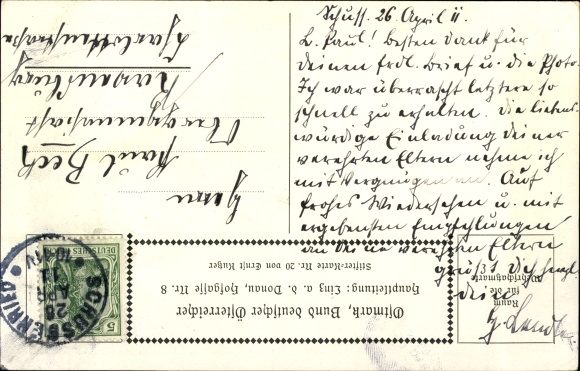 Schuss. 26. April 11.
L. Paul! Besten Dank für
deinen frdl. Brief u. die Photo.
Ich war überrascht letztere so
schnell zu erhalten. Die liebens-
würdige Einladung deiner
verehrten Eltern nehme ich
mit Vergnügen an. Auf
frohes Wiedersehen u. mit
ergebensten Empfehlungen
an deine verehrten Eltern
grüßt Dich herzl.
dein
Herrn
Paul Beck
Obergymnasiast
Ravensburg
Ostmark, Bund deutscher Österreicher
Hauptleitung: Linz a. d. Donau, Hofgasse Nr. 8
Stifter-Karte Nr. 20 von Ernst Kutzer
Raum
für die
DEUTSCHES
5
SCHUSSENRIED
26
APR
11